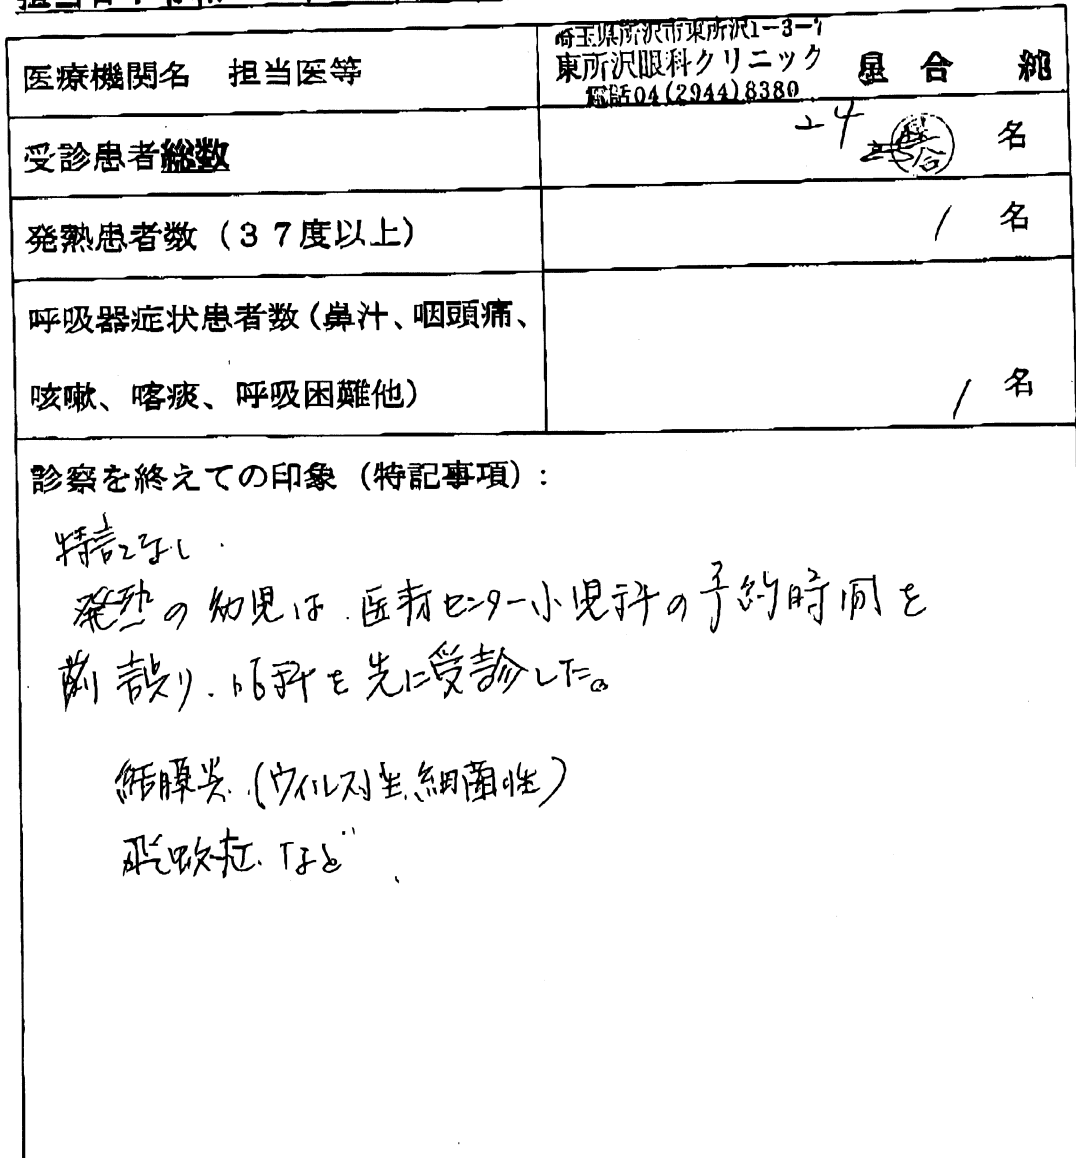 医療機関名　担当医等
埼玉県所沢市東所沢1-3-
東所沢眼科クリニック
電話04(2944)8380
星合 純
受診患者総数
24 名
発熱患者数（３７度以上）
1 名
呼吸器症状患者数（鼻汁、咽頭痛、
咳嗽、喀痰、呼吸困難他）
1 名
診察を終えての印象（特記事項）：
特記なし.
発熱の幼児は.医療センター小児科の予約時間を
誤り.眼科を先に受診した。
結膜炎.(ウィルス性,細菌性)
飛蚊症.など